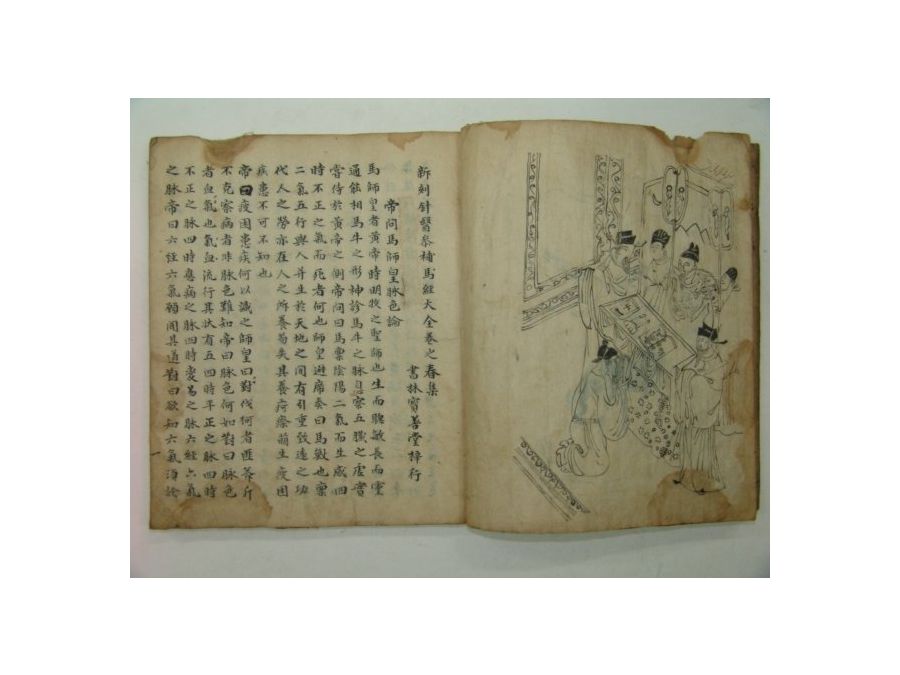 新刻針醫參補馬經大全卷之春集
書林寶善堂梓行
帝問馬師皇脉色論
馬師皇者黃帝時明牧之聖師也生而聰敏長而靈
通能相馬牛之形神診馬牛之脉息察五臟之虛實
嘗侍於黃帝之側帝問曰馬禀陰陽二氣而生感四
時不正之氣而死者何也師皇避席奏曰馬獸也禀
二氣五行與人并生於天地之間有引重致遠之功
代人之勞亦在人之所養苟失其養疴瘵萌生疫困
疾患不可不知也
帝曰疫困患疾何以識之師皇曰對伐柯者匪斧斤
不克察病者非脉色難知帝曰脉色何如對曰脉色
者血氣也氣血流行其狀有五四時平正之脉四時
不正之脉四時應病之脉四時變易之脉六經六氣
之脉帝曰六經六氣願聞其道對曰欲知六氣須論